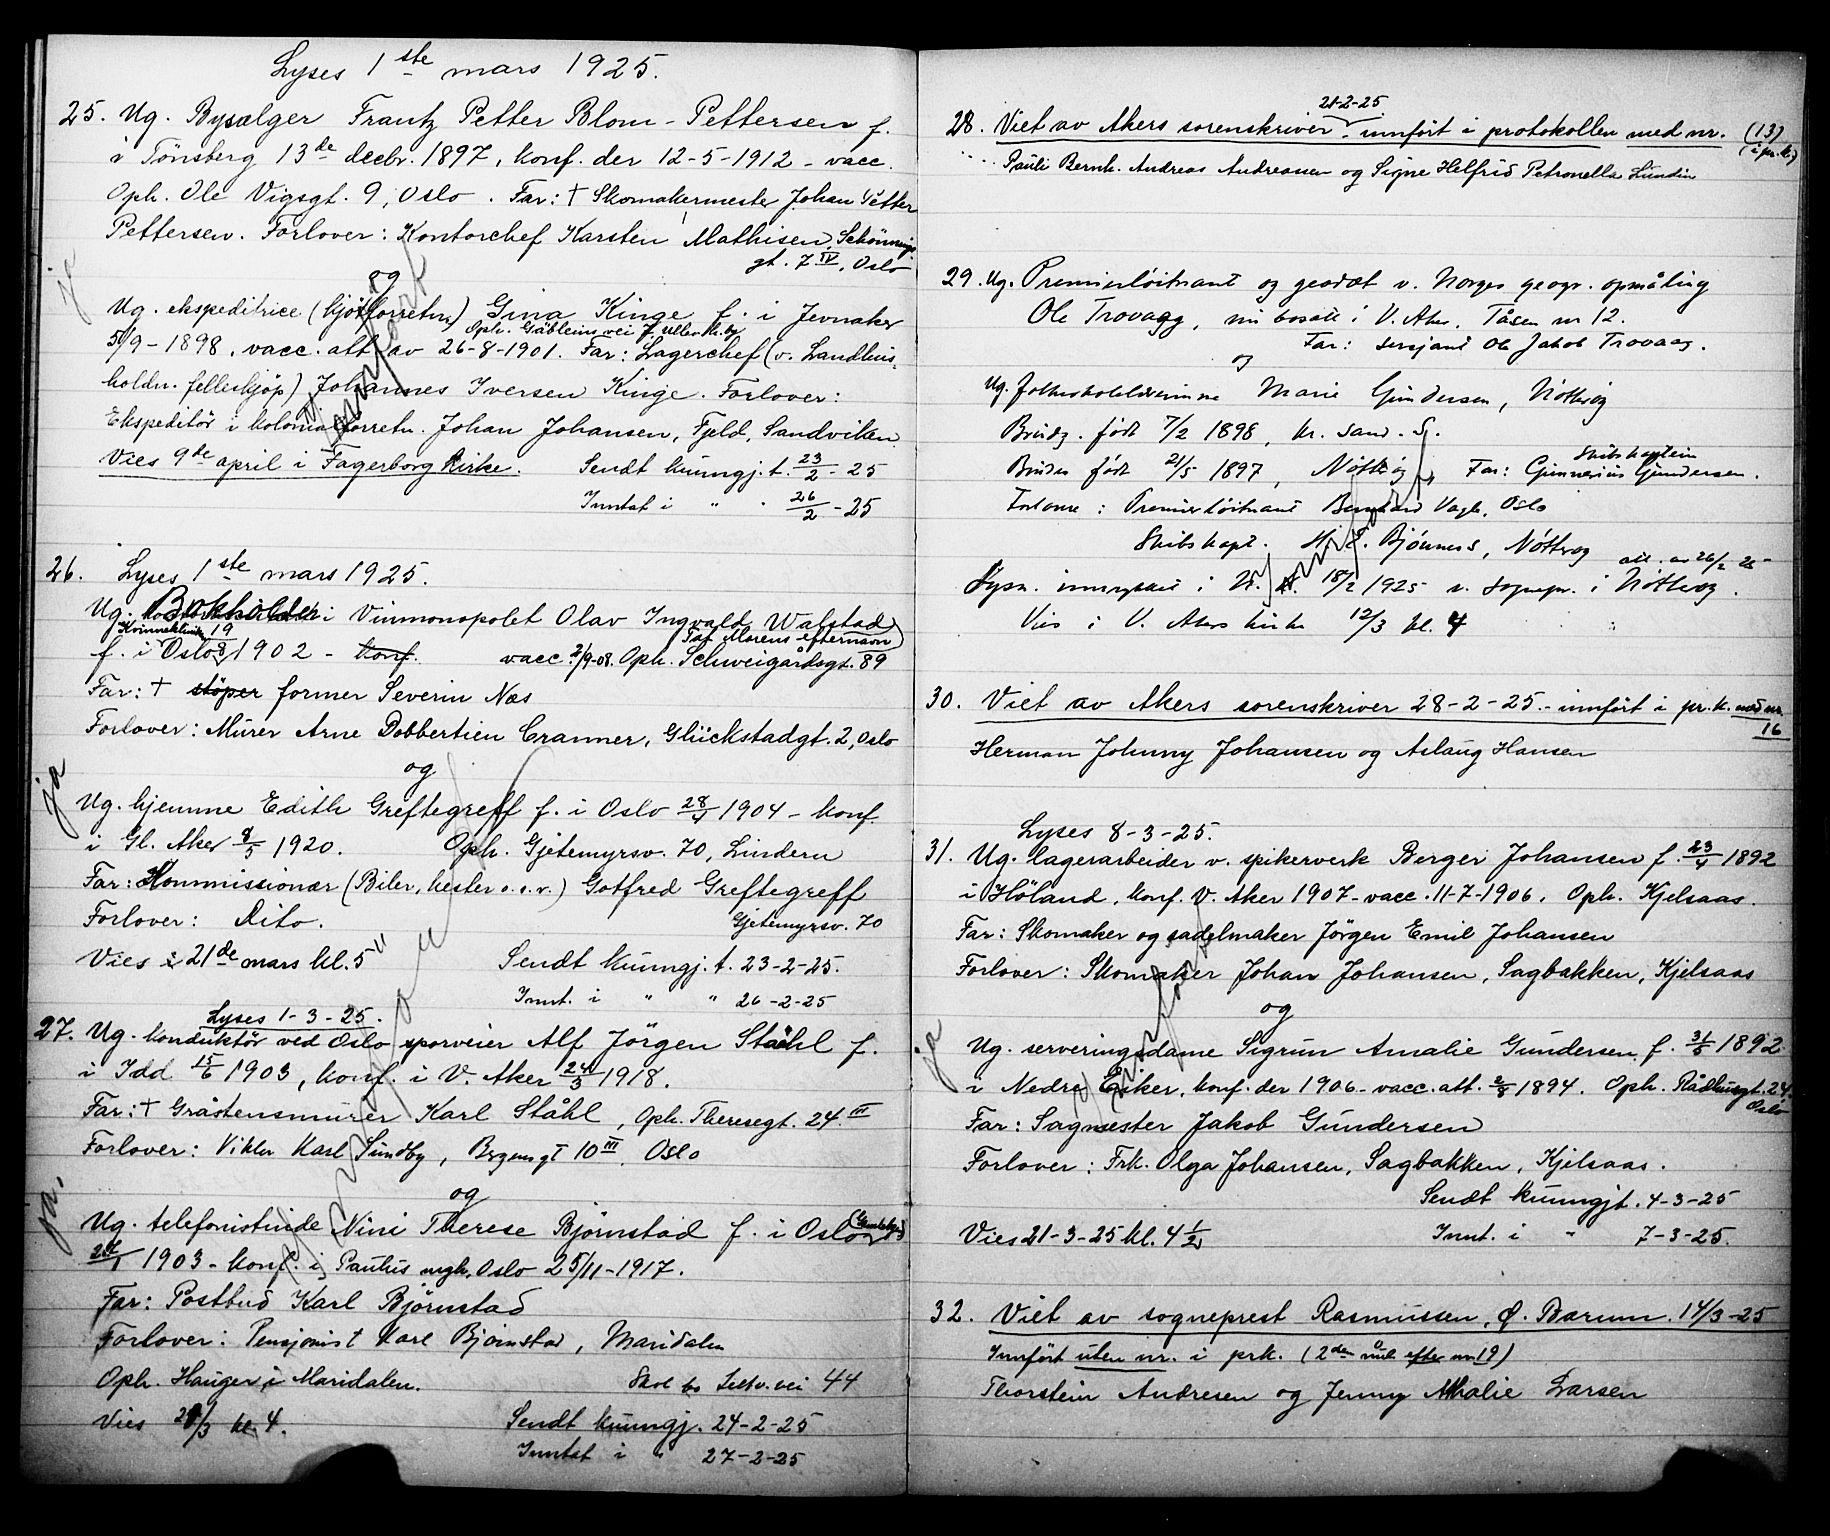 Lyses 1ste mars 1925.
25. Ug. Bysælger Frantz Petter Blom-Pettersen f.
i Tønsberg 13de decbr. 1897, konf. der 12-5-1912 - vacc.
Oph. Ole Vigsgt. 9, Oslo. Far: † Skomakermester Johan Petter
Pettersen. Forlover: Kontorchef Karsten Mathisen, Schønnings
gt. 7 IV, Oslo
ja
og
Ug. ekspeditrice (kjøtforretn.) Gina Kinge f. i Jevnaker
Oph.
5/9-1898, vacc. att. av 26-8-1901. Far: Lagerchef (v. Landhus-
holdn. felleskjøp) Johannes Iversen Kinge. Forlover:
Ekspeditør i kolonialforretn. Johan Johansen, Fjeld, Sandviken
Vies 9de april i Fagerborg kirke. Sendt kunngj. t. 23/2-25
Inntat i " " 26/2-25
26. Lyses 1ste mars 1925.
Ug. Bokholder i Vinmonopolet Olav Ingvald Walstad
(Tat Morens efternavn)
f. i Oslo 19/8 1902 - konf. vacc. 2/9-08. Oph. Schweigårdsgt. 89
Far: † støper former Severin Næs
Forlover: Murer Arne Dobbertien Cranner, Glückstadgt. 2, Oslo
og
ja
Ug. hjemme Edith Greftegreff f. i Oslo 28/4 1904 - konf.
i Gl. Aker 8/5 1920. Oph. Gjetemyrsv. 70, Lindern
Far: Kommissionær (Biler, hester o.s.v.) Gotfred Greftegreff
Forlover: Dito. Gjetemyrsv. 70
Vies 21de mars kl. 5 Sendt kunngj. t. 23-2-25.
Innt. i " " 26-2-25
Lyses 1-3-25.
27. Ug. konduktør ved Oslo sporveier Alf Jörgen Ståhl f.
i Idd 15/6 1903, konf. i V. Aker 24/3 1918.
Far: † Gråstensmurer Karl Ståhl, Oph. Theresegt. 24 III
Forlover: Vikler Karl Sundby, Bergensgt 10 III, Oslo
og
ja.
Ug. telefonistinde Nini Therese Björnstad f. i Oslo
1903 - konf. i Paulus mgh. Oslo 25/11-1917.
Far: Postbud Karl Björnstad
Forlover: Pensjonist Karl Bjørnstad, Maridalen
Oph. Hauger i Maridalen. Skal bo vei 44
Vies 21/3 kl. 4. Sendt kunngj. 24-2-25
Inntat i " 27-2-25
21-2-25
28. Viet av Akers sorenskriver - innført i protokollen med nr. (13)
(i pr.k.)
Pauli Bernh. Andreas Andreassen og Signe Helfrid Petronella Lundin
29. Ug. Premierløitnant og geodæt v. Norges geogr. opmåling
Ole Trovaag, nu bosatt i V. Aker, Tåsen nr 12.
Far: sersjant Ole Jakob Trovaag.
og
Ug. Marie Gundersen, Nötterøy
Brudg. født 7/2 1898, Kr. sand. S.
Bruden født 21/5 1897, Nøtterøy, Far: Skibskaptein Gunnerius Gundersen.
Forlovere: Premierløitnant Bernhard Vagle, Oslo
Skibskapt. Bjønnes, Nøtterøy
Lysn. 18/2 1925 v. sognepr. i Nøtterøy. att. av 26/2 25
Vies i V. Akers kirke 12/3 kl. 4
30. Viet av Akers sorenskriver 28-2-25. - innført i pr. k. med nr.
16
Herman Johnny Johansen og Aslaug Hansen
Lyses 8-3-25.
31. Ug. lagerarbeider v. spikerverk Berger Johansen f. 23/4 1892
i Høland, konf. V. Aker 1907 - vacc. 11-7-1906. Oph. Kjelsaas.
Far: Skomaker og sadelmaker Jørgen Emil Johansen
Forlover: Skomaker Johan Johansen, Sagbakken, Kjelsaas
og
ja
Ug. serveringsdame Sigrun Amalie Gundersen f. 31/5 1892
i Nedre Eiker, konf. der 1906 - vacc. att. 2/8 1894. Oph. Rådhusgt. 24.
Oslo
Far: Sagmester Jakob Gundersen
Forlover: Frk. Olga Johansen, Sagbakken, Kjelsaas.
Sendt kunngjt. 4-3-25
Vies 21-3-25 kl. 4 1/2 Innt. i " 7-3-25.
32. Viet av sogneprest Rasmussen, Ø. Bærum. 14/3-25
Innført uten nr. i prk. (2den efter nr 19)
Thorstein Andresen og Jenny Amalie Larsen